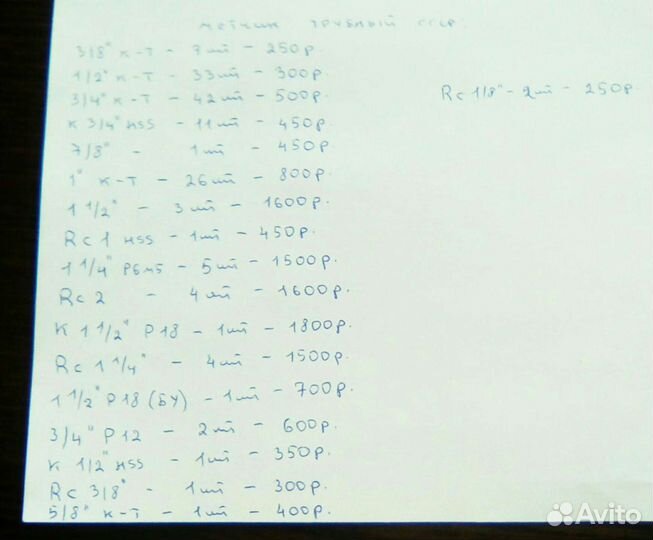 метчик трубный ссср.
3/8" к-т - 7шт - 250р.
1/2" к-т - 33шт - 300р.
3/4" к-т - 42шт - 500р.
Rc 1/8" - 2шт - 250р.
к 3/4" HSS - 11шт - 450р.
7/8" - 1шт - 450р.
1" к-т - 26шт - 800р.
1 1/2" - 3шт - 1600р.
Rc 1 HSS - 1шт - 450р.
1 1/4" Р6м5 - 5шт - 1500р.
Rc 2 - 4шт - 1600р.
К 1 1/2" Р18 - 1шт - 1800р.
Rc 1 1/4" - 4шт - 1500р.
1 1/2" Р18 (БУ) - 1шт - 700р.
3/4" Р12 - 2шт - 600р.
к 1/2" HSS - 1шт - 350р.
Rc 3/8" - 1шт - 300р.
5/8" к-т - 1шт - 400р.
Avito